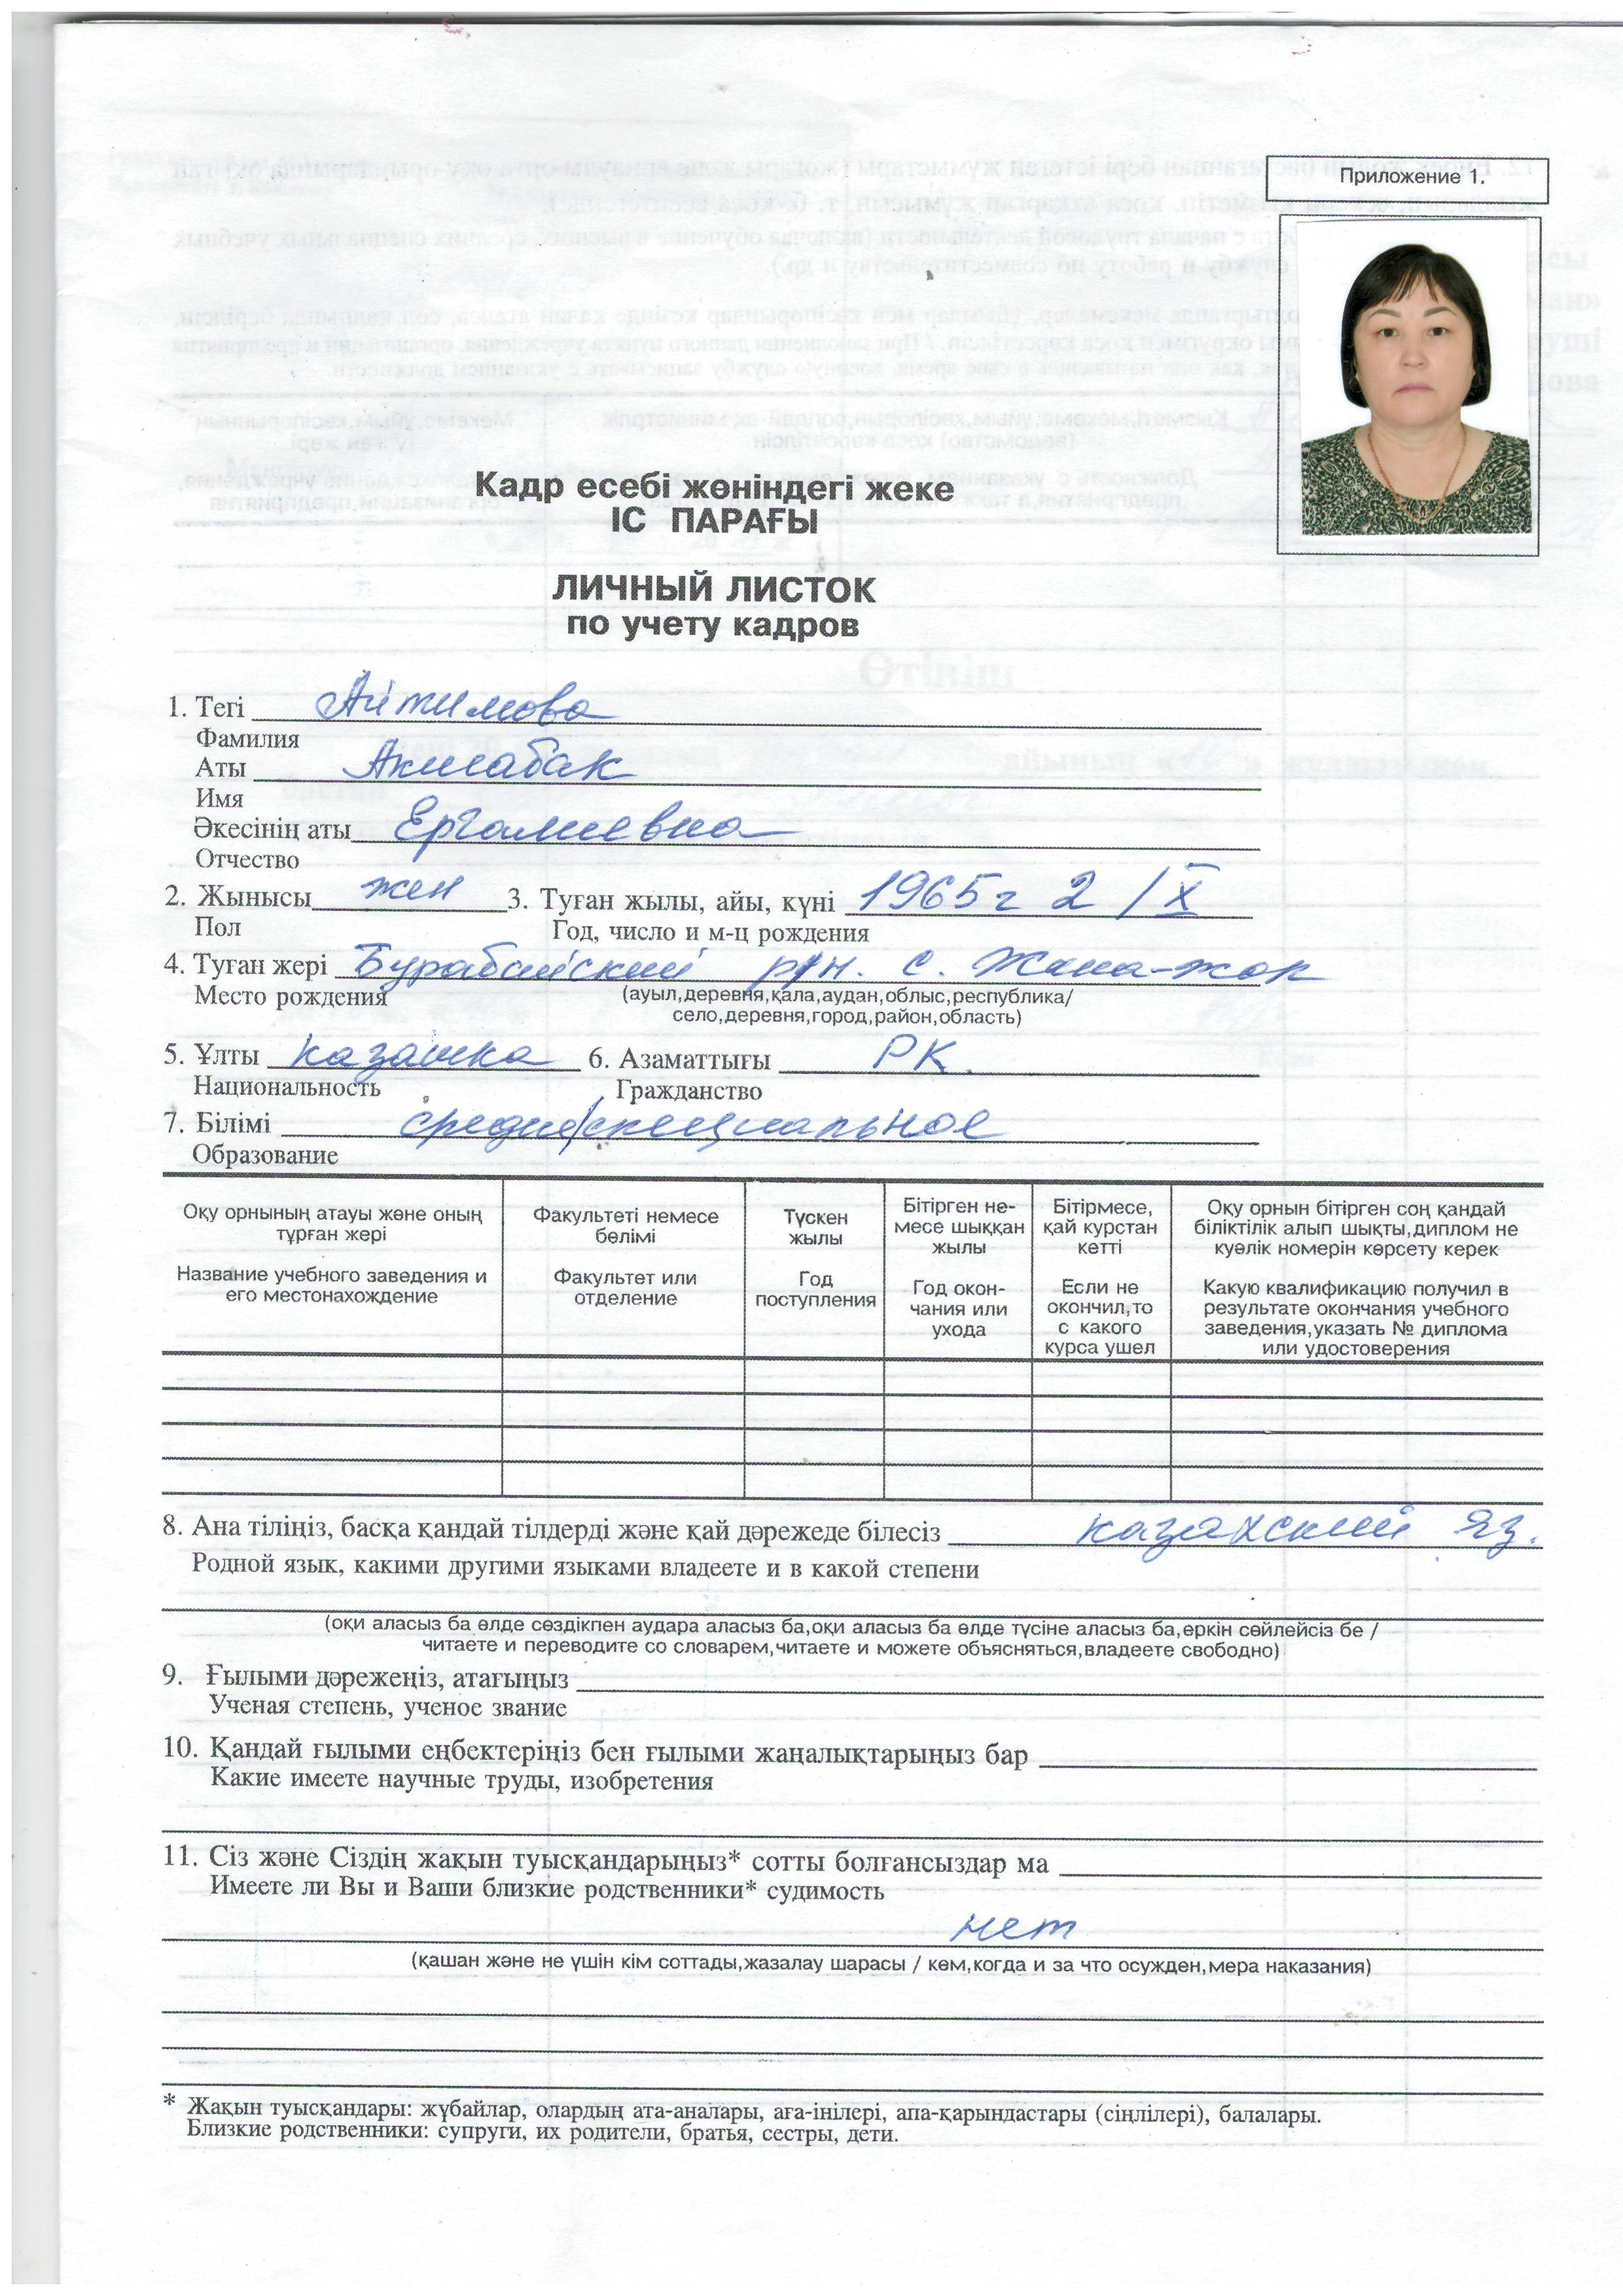 Приложение 1.
Кадр есебі жөніндегі жеке
ІС ПАРАҒЫ
ЛИЧНЫЙ ЛИСТОК
по учету кадров
1. Тегі Айтимова
Фамилия
Аты Акмабак
Имя
Әкесінің аты Ергалиевна
Отчество
2. Жынысы жен 3. Туған жылы, айы, күні 1965г 2 / X
Пол Год, число и м-ц рождения
4. Туған жері Бурабайский р/н. с. Жана-жол
Место рождения (ауыл,деревня,қала,аудан,облыс,республика/
село,деревня,город,район,область)
5. Ұлты казашка 6. Азаматтығы РК.
Национальность Гражданство
7. Білімі средне/специальное
Образование
Оқу орнының атауы және оның тұрған жері
Название учебного заведения и его местонахождение
Факультеті немесе бөлімі
Факультет или отделение
Түскен жылы
Год поступления
Бітірген не-месе шыққан жылы
Год окон-чания или ухода
Бітірмесе, қай курстан кетті
Если не окончил,то с какого курса ушел
Оқу орнын бітірген соң қандай біліктілік алып шықты,диплом не куәлік номерін көрсету керек
Какую квалификацию получил в результате окончания учебного заведения,указать № диплома или удостоверения
8. Ана тіліңіз, басқа қандай тілдерді және қай дәрежеде білесіз казахский яз.
Родной язык, какими другими языками владеете и в какой степени
(оқи аласыз ба әлде сөздікпен аудара аласыз ба,оқи аласыз ба әлде түсіне аласыз ба,еркін сөйлейсіз бе /
читаете и переводите со словарем,читаете и можете объясняться,владеете свободно)
9. Ғылыми дәрежеңіз, атағыңыз
Ученая степень, ученое звание
10. Қандай ғылыми еңбектеріңіз бен ғылыми жаңалықтарыңыз бар
Какие имеете научные труды, изобретения
11. Сіз және Сіздің жақын туысқандарыңыз* сотты болғансыздар ма
Имеете ли Вы и Ваши близкие родственники* судимость
нет
(қашан және не үшін кім соттады,жазалау шарасы / кем,когда и за что осужден,мера наказания)
* Жақын туысқандары: жұбайлар, олардың ата-аналары, аға-інілері, апа-қарындастары (сіңлілері), балалары.
Близкие родственники: супруги, их родители, братья, сестры, дети.